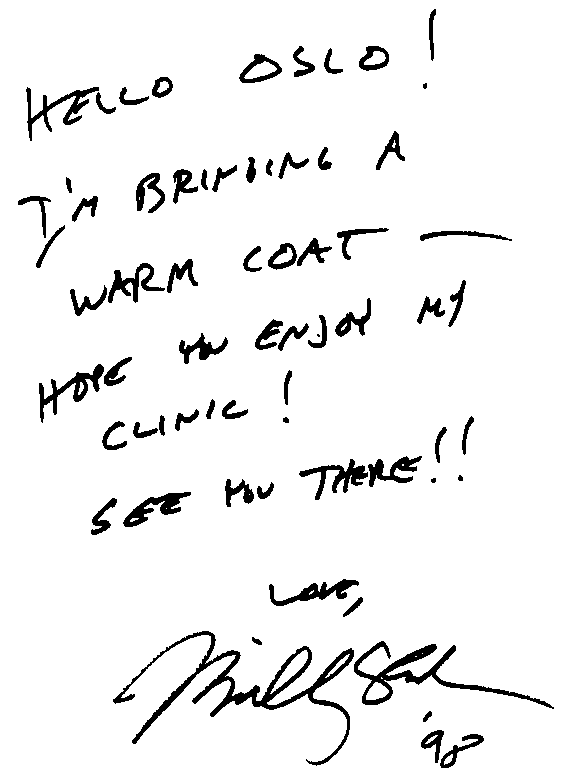 HELLO OSLO!
I'M BRINGING A
WARM COAT —
HOPE YOU ENJOY MY
CLINIC!
SEE YOU THERE!!
LOVE,
Billy
'98